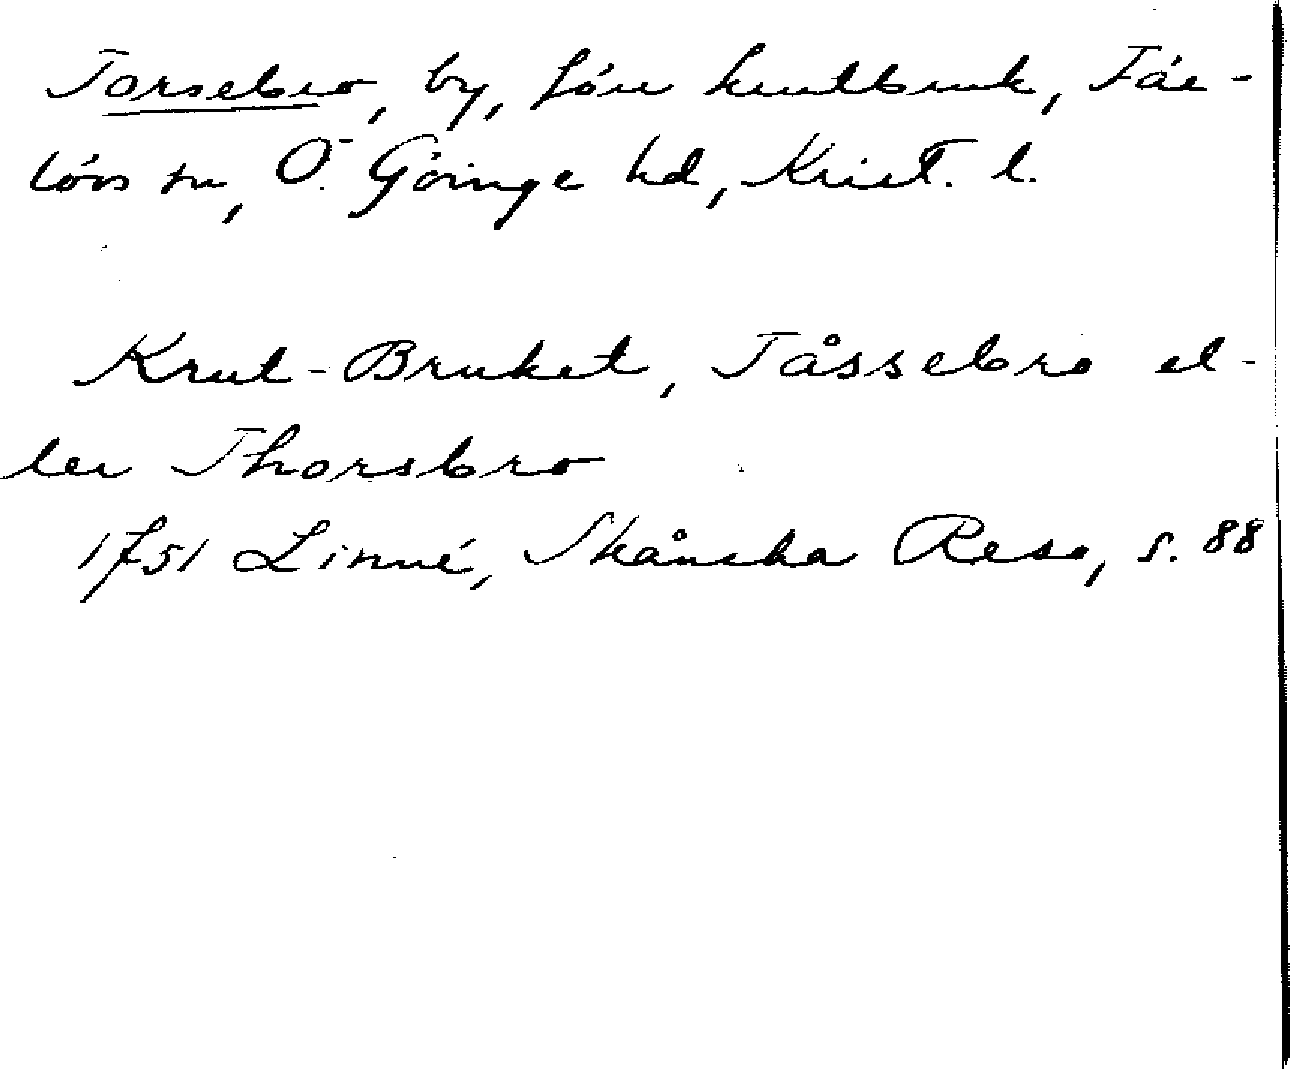 Torsebro, by, förr krutbruk, Fär-
lövs sn, Ö. Göinge hd, Krist. l.
Krut-Bruket, Tåssebro el-
ler Thorsbro
1751 Linné, Skånska Resa, s. 88